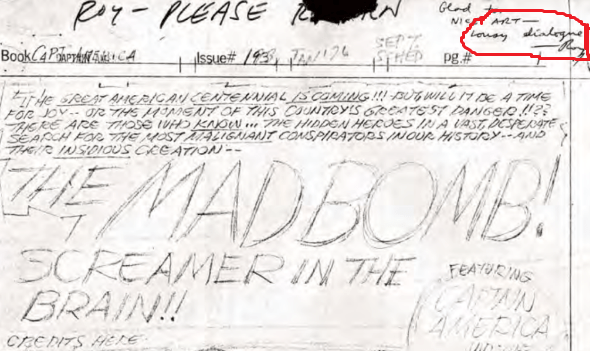 ROY - PLEASE RETURN
Glad to
NICE ART—
Lousy dialogue
—Roy
Book CAPTAIN AMERICA Issue# 193 JAN '76 SEPT SCHED pg.#
THE GREAT AMERICAN CENTENNIAL IS COMING!!! BUT WILL IT BE A TIME
FOR JOY-- OR THE MOMENT OF THIS COUNTRY'S GREATEST DANGER!!??
THERE ARE THOSE WHO KNOW... THE HIDDEN HEROES IN A VAST, DESPERATE
SEARCH FOR THE MOST MALIGNANT CONSPIRATORS IN OUR HISTORY--AND
THEIR INSIDIOUS CREATION--
THE MADBOMB!
SCREAMER IN THE
BRAIN!!
FEATURING
CAPTAIN
AMERICA
CREDITS HERE